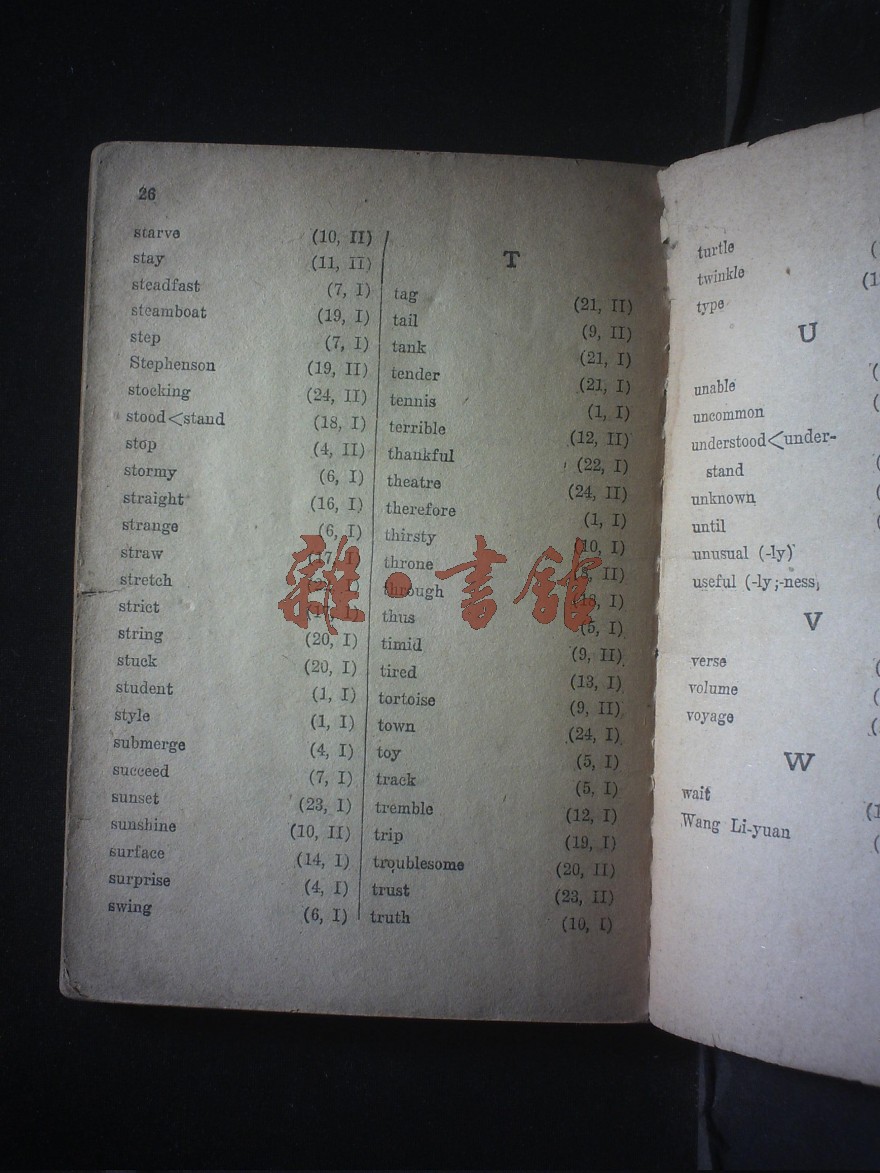 26
starve (10, II)
stay (11, II)
steadfast (7, I)
steamboat (19, I)
step (7, I)
Stephenson (19, II)
stocking (24, II)
stood<stand (18, I)
stop (4, II)
stormy (6, I)
straight (16, I)
strange (6, I)
straw (17, I)
stretch
strict
string (20, I)
stuck (20, I)
student (1, I)
style (1, I)
submerge (4, I)
succeed (7, I)
sunset (23, I)
sunshine (10, II)
surface (14, I)
surprise (4, I)
swing (6, I)
T
tag (21, II)
tail (9, II)
tank (21, I)
tender (21, I)
tennis (1, I)
terrible (12, II)
thankful (22, I)
theatre (24, II)
therefore (1, I)
thirsty (10, I)
throne
through (18, I)
thus (5, I)
timid (9, II)
tired (13, I)
tortoise (9, II)
town (24, I)
toy (5, I)
track (5, I)
tremble (12, I)
trip (19, I)
troublesome (20, II)
trust (23, II)
truth (10, I)
turtle
twinkle
type
U
unable
uncommon
understood<under-
stand
unknown
until
unusual (-ly)
useful (-ly;-ness)
V
verse
volume
voyage
W
wait
Wang Li-yuan
雜·書館